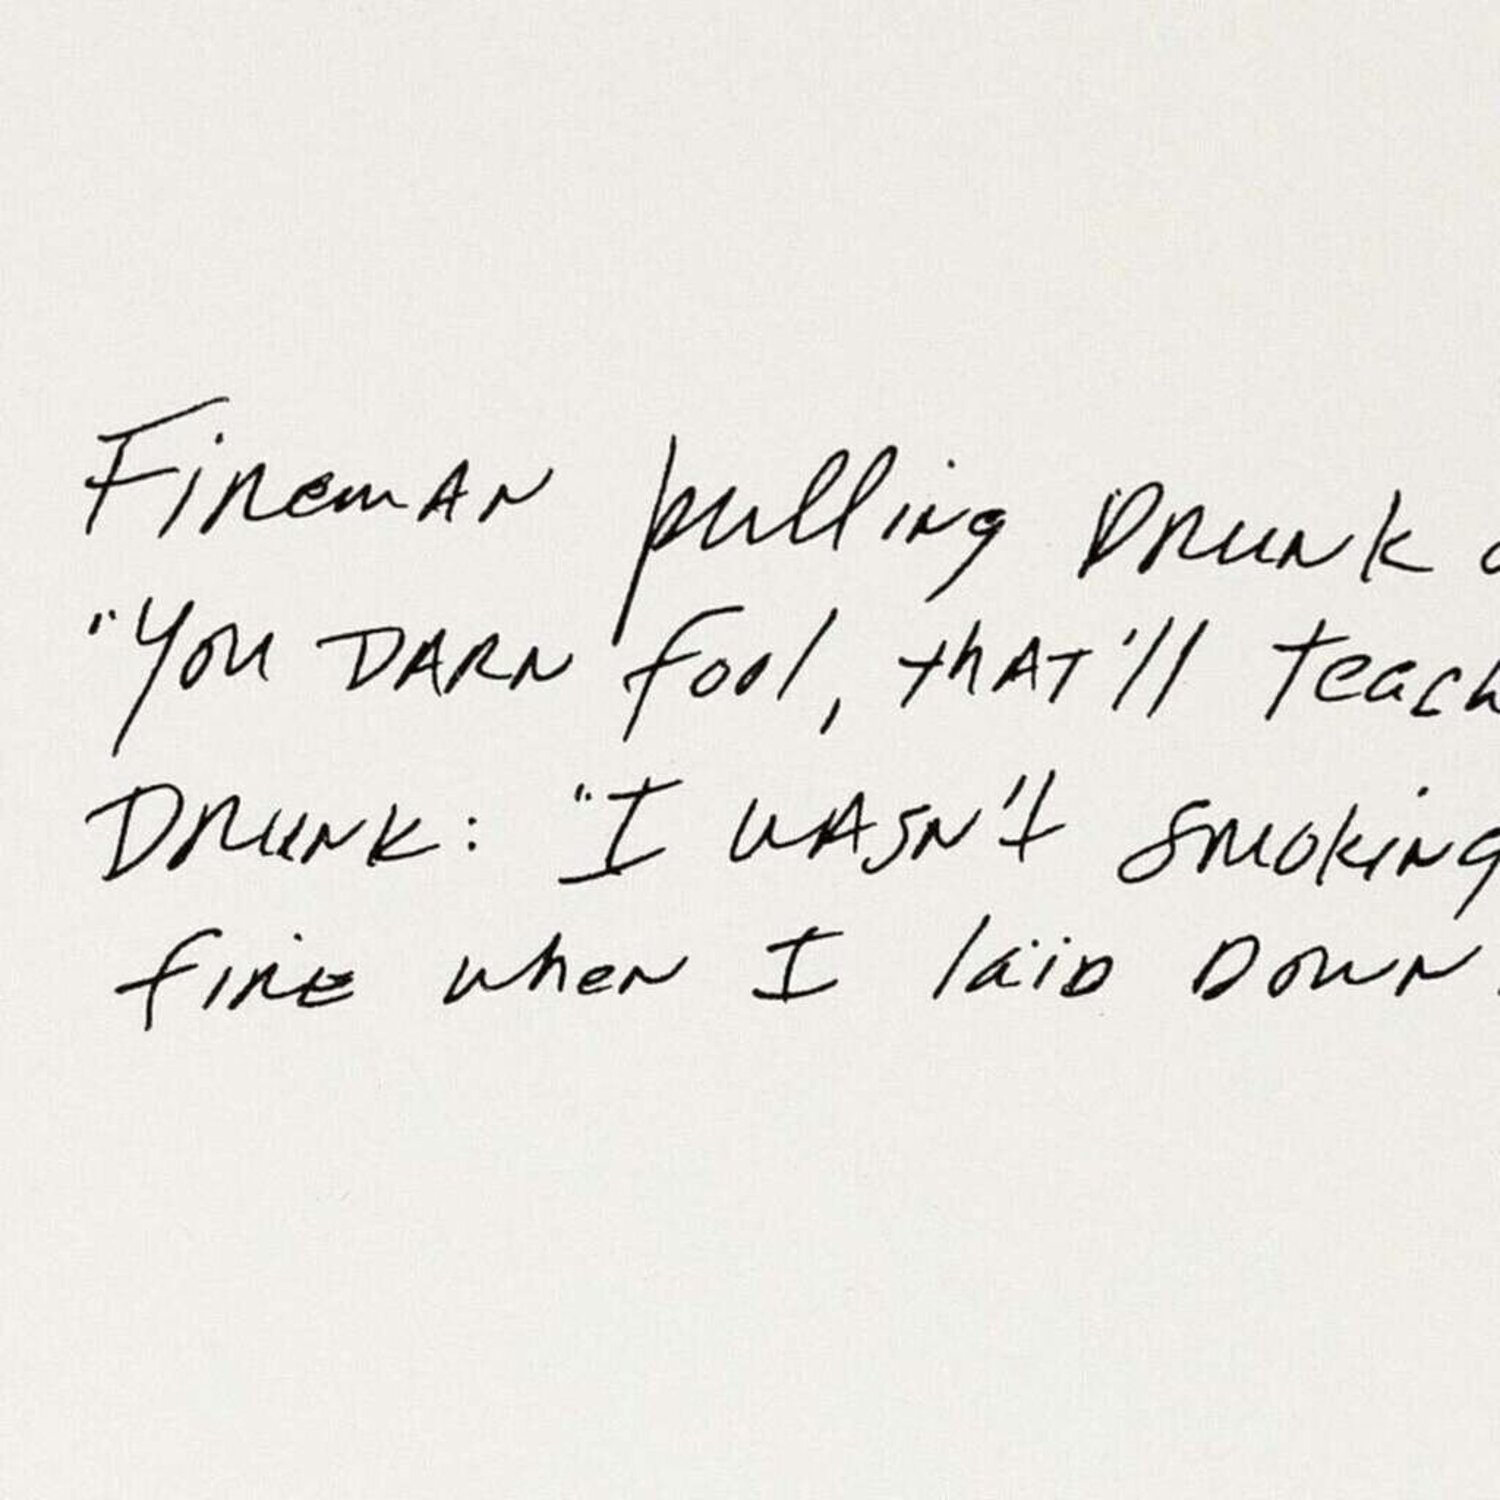 Fireman pulling Drunk
"You DARN fool, thAT'll teach
DRunk: "I wASN't smoking
fire when I laid Down.